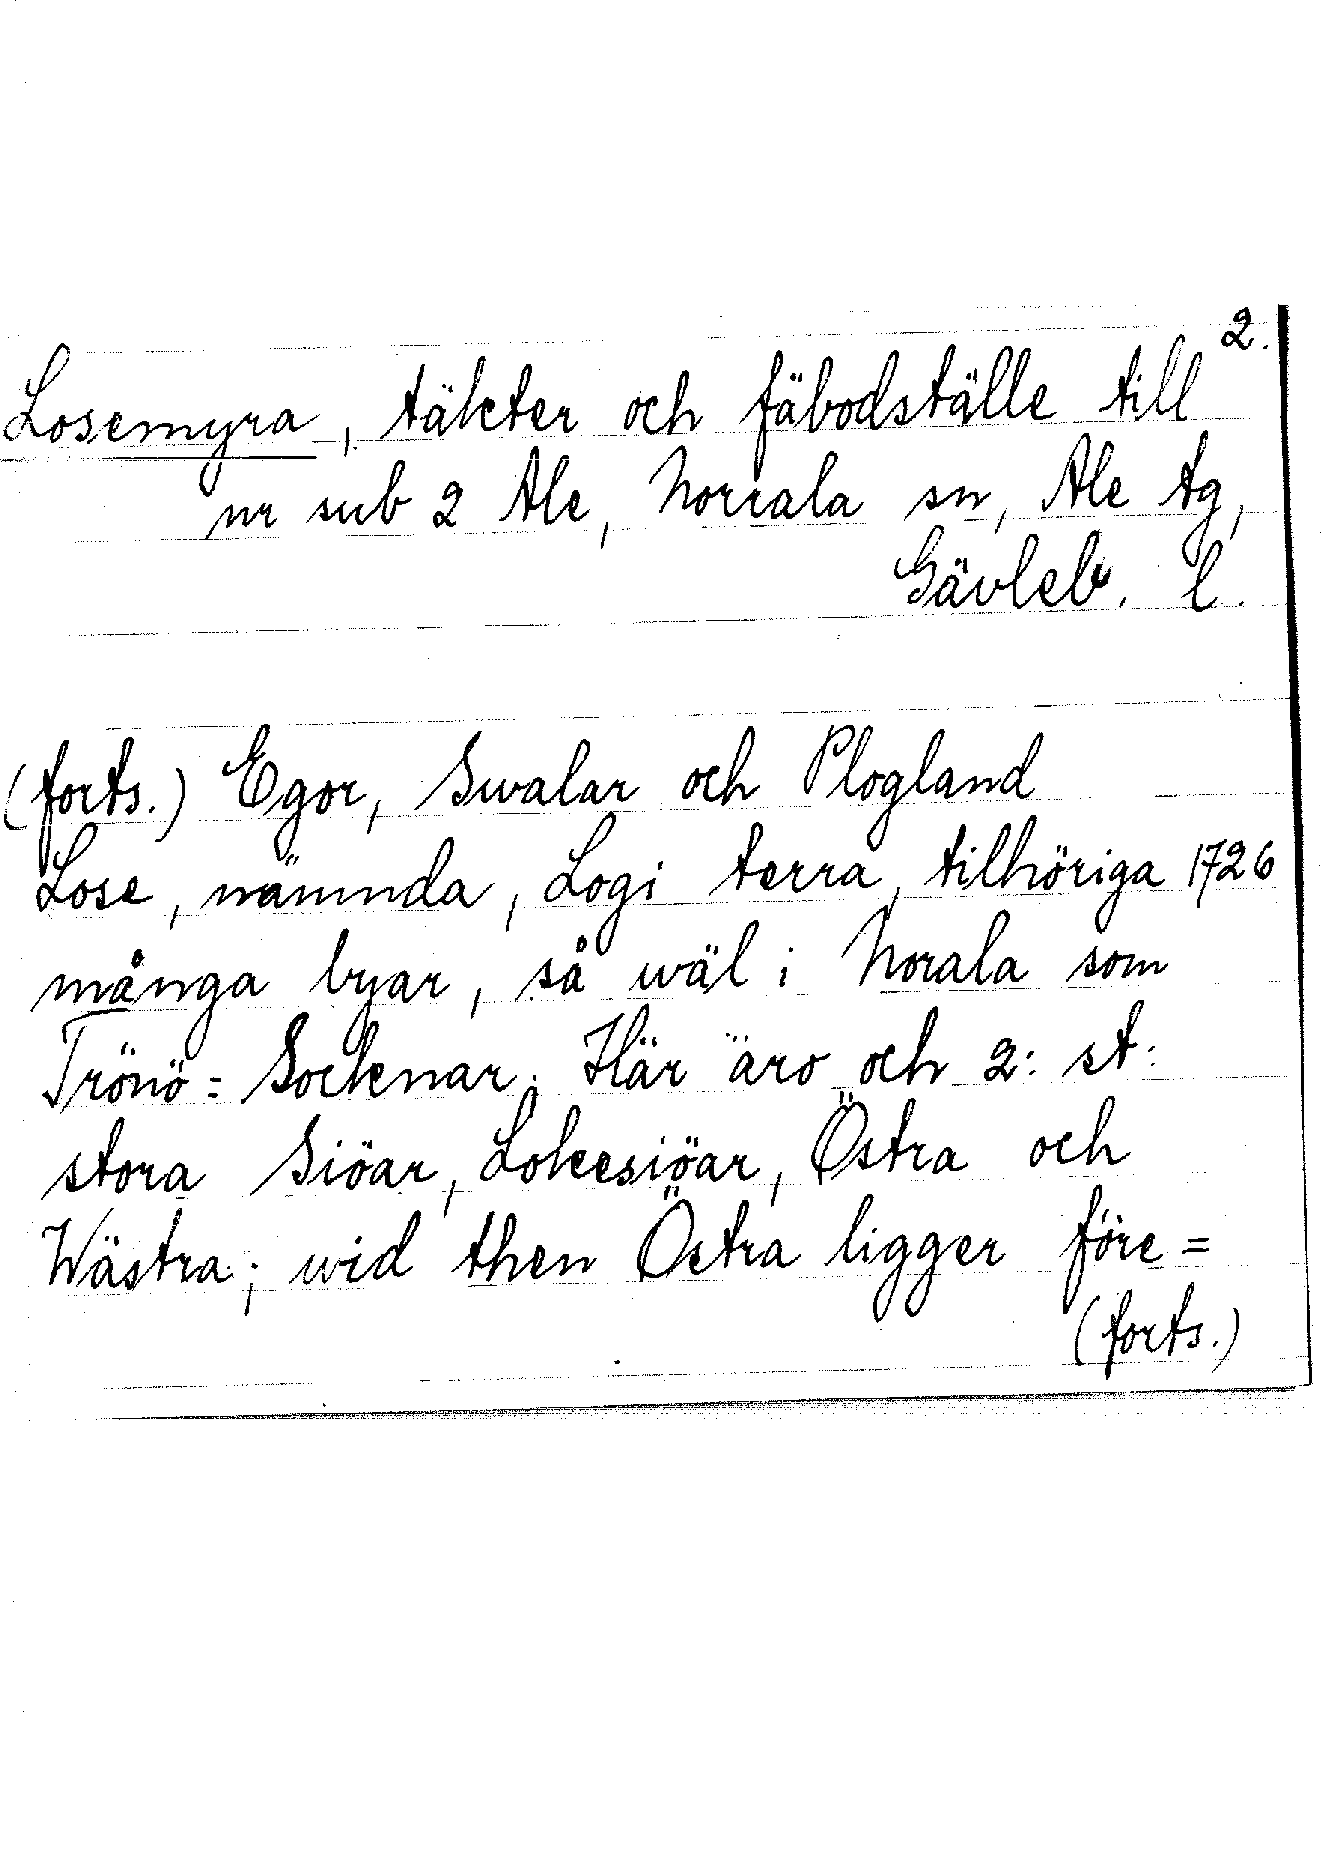 2.
Losemyra, täkter och fäbodställe till
nr sub 2 Ale, Norrala sn, Ale tg,
Gävleb. l.
(forts.) Egor, Swalar och Plogland
Lose, nämnda, Logi terra, tilhöriga 1726
många byar, så wäl i Norala som
Trönö = Sockenar. Här äro och 2: st:
stora Siöar, Lokesiöar, Östra och
Wästra; wid then Östra ligger före =
(forts.)